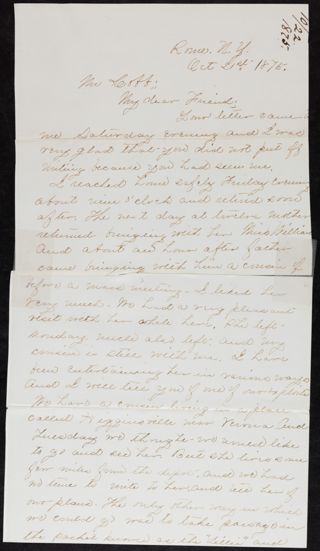 10/22
1875.
Rome. N.Y.
Oct 21st 1875.
Mr Cobb;
My dear Friend;
Your letter came to
me Saturday evening and I was
very glad that you did not put off
writing because you had seen me.
I reached home safely Friday evening
about nine o'clock and retired soon
after. The next day at twelve mother
returned bringing with her Miss
And about an hour after father
came bringing with him a cousin of
a mass meeting. I liked her
very much. We had a very pleasant
visit with her while here. She left
Monday, uncle also left, and my
cousin is still with me. I have
been entertaining her in various ways
And I will tell you of one of our exploits
We have a cousin living in a place
called Higginsville near Verona and
Tuesday we thought we would like
to go and see her. But she lives some
few miles from the depot, and we had
no time to write to her and tell her of
our plans. The only other way in which
we could go was to take passage on
the packet known as the "